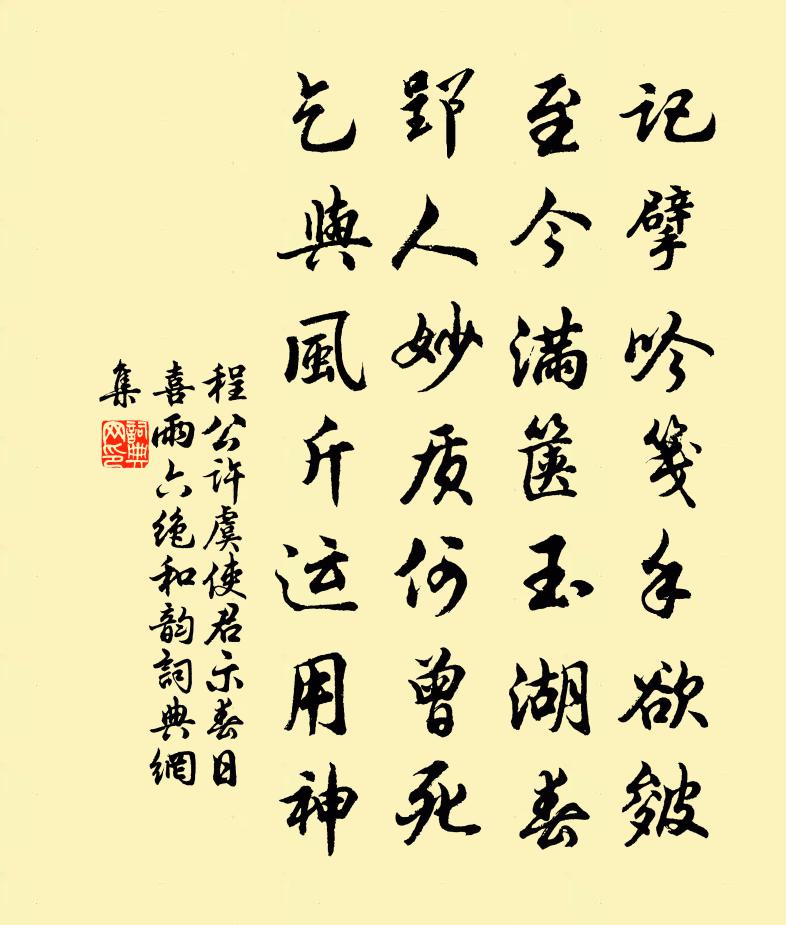 記擘吟箋手欲皴
至今滿篋玉湖春
郢人妙质何曾死
乞與風斤运用神
程公许虞使君示春日
喜雨六绝和韵詞典網
集
詞典
网印